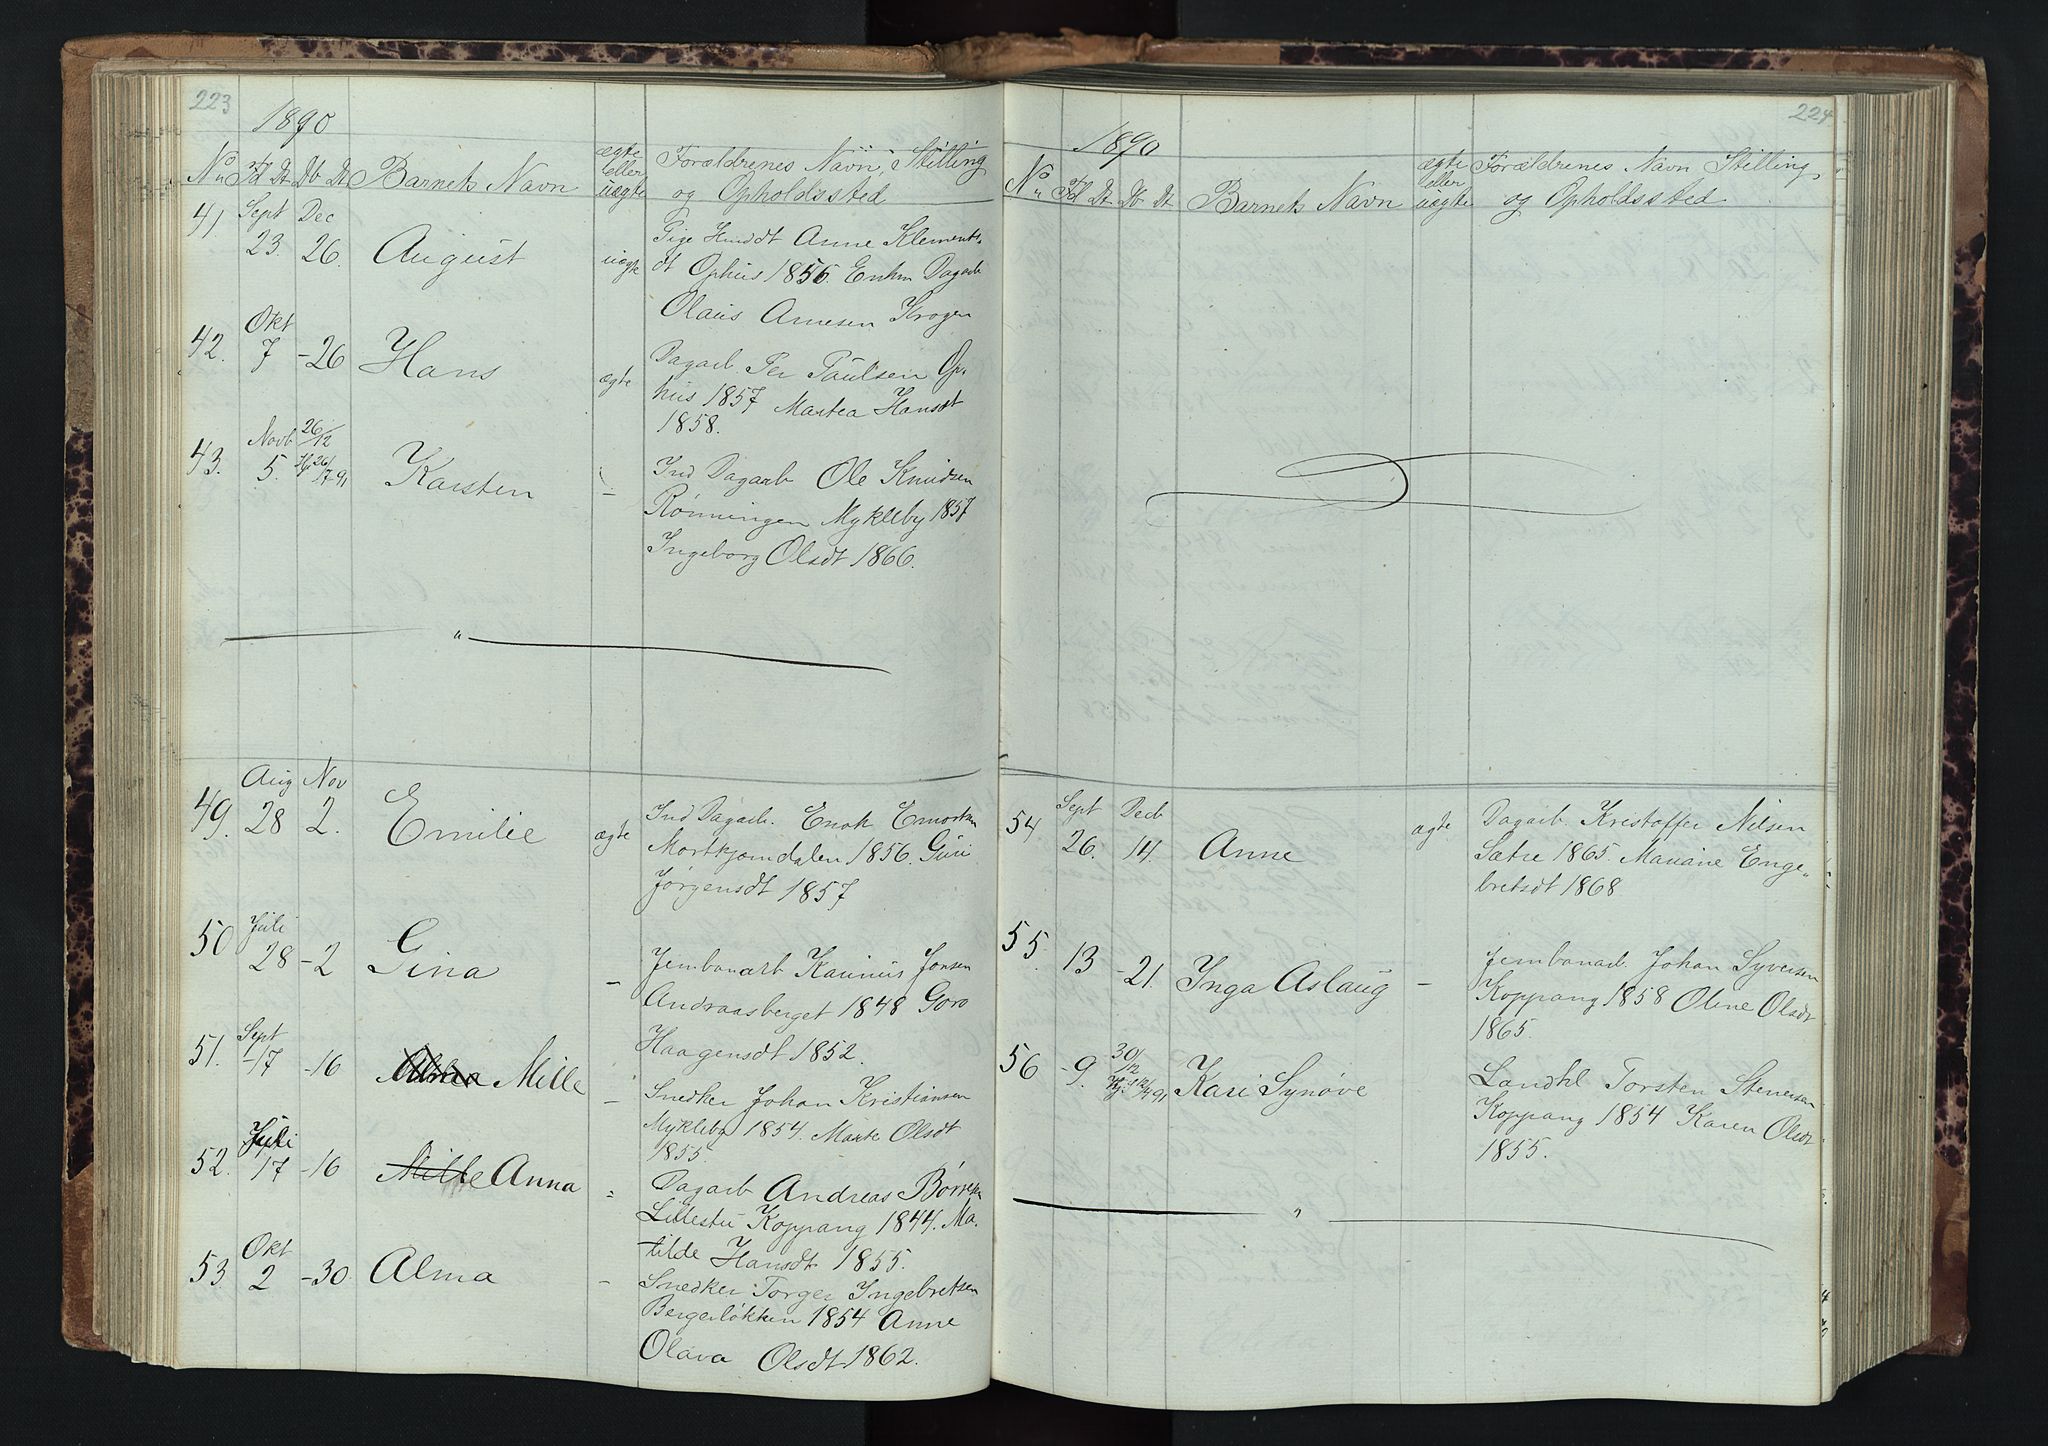 223
1890
No Fd Dt Db Dt Barnets Navn ægte eller uægte Forældrenes Navn, Stilling
og Opholdssted
41 Sept 23. Dec 26. August uægte Pige Husdt Anne Klements-
dt Ophus 1856. Enkm Dagarb
Olaus Arnesen Krogen
42. Okt 7 -26 Hans ægte Dagarb. Per Paulsen Op-
hus 1857 Martea Hansdt
1858.
43. Novb 5. 26/12 Kj. 26/7-91 Karsten - Ind Dagarb Ole Knudsen
Rønningen Mykleby 1857
Ingeborg Olsdt 1866.
"
49. Aug 28 Nov 2. Emilie ægte Ind Dagarb. Enok Emortsen
Mortkjerndalen 1856. Guri
Jørgensdt 1857
50 Juli 28 -2 Gina - Jernbanarb Karinus Jonsen
Andraasberget 1848 Goro
Haagensdt 1852.
51. Sept 17 -16 Mille - Snedker Johan Kristiansen
Mykleby 1854. Marte Olsdt
1855
52. Juli 17 -16 Mille Anna = Dagarb Andreas Børresen
Lillestu Koppang 1844. Ma-
tilde Hansdt 1855.
53 Okt 2 -30 Alma - Snedker Torger Ingebretsen
Bergerløkken 1854 Anne
Olava Olsdt 1862.
224
1890
No Fd Dt Db Dt Barnets Navn ægte eller uægte Forældrenes Navn Stilling,
og Opholdssted
54 Sept 26. Decb 14. Anne ægte Dagarb. Kristoffer Nilsen
Sætre 1865. Mariane Enge-
bretsdt 1868
55. 13 -21. Inga Aslaug - Jernbanarb. Johan Syversen
Koppang 1858 Oline Olsdt
1865.
56 -9. 30/12 Kari Synøve Landhl Torsten Stenersen
Koppang 1854 Karen Olsdt
1855.
"